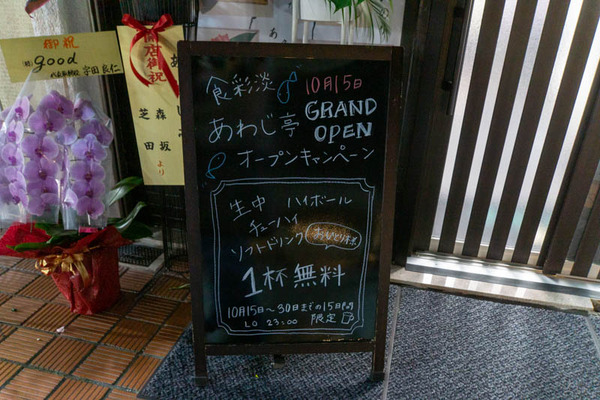 御祝
(有) good
代表取締役 宇田良仁
開店御祝
芝 森
田 坂
より
食彩淡
10月15日
あわじ亭
GRAND
OPEN
オープンキャンペーン
生中 ハイボール
チューハイ
ソフトドリンク
おひとり様
1杯無料
10月15日～30日までの15日間
LO 23:00 限定